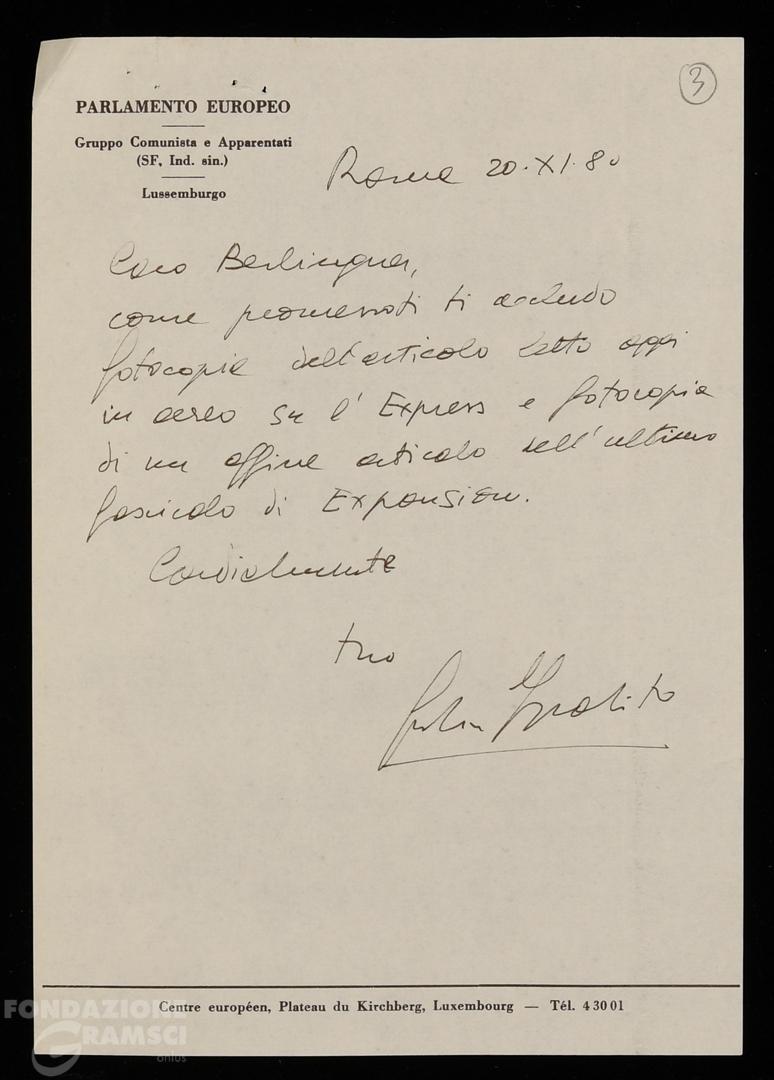 3
PARLAMENTO EUROPEO
Gruppo Comunista e Apparentati
(SF, Ind. sin.)
Lussemburgo
Roma 20.XI.80
Caro Berlinguer,
come promessoti ti accludo
fotocopia dell'articolo letto oggi
in aereo su l'Express e fotocopia
di un affine articolo dell'ultimo
fascicolo di Expansion.
Cordialmente
tuo
Ippolito
Centre européen, Plateau du Kirchberg, Luxembourg — Tél. 43001
FONDAZIONE
GRAMSCI
onlus